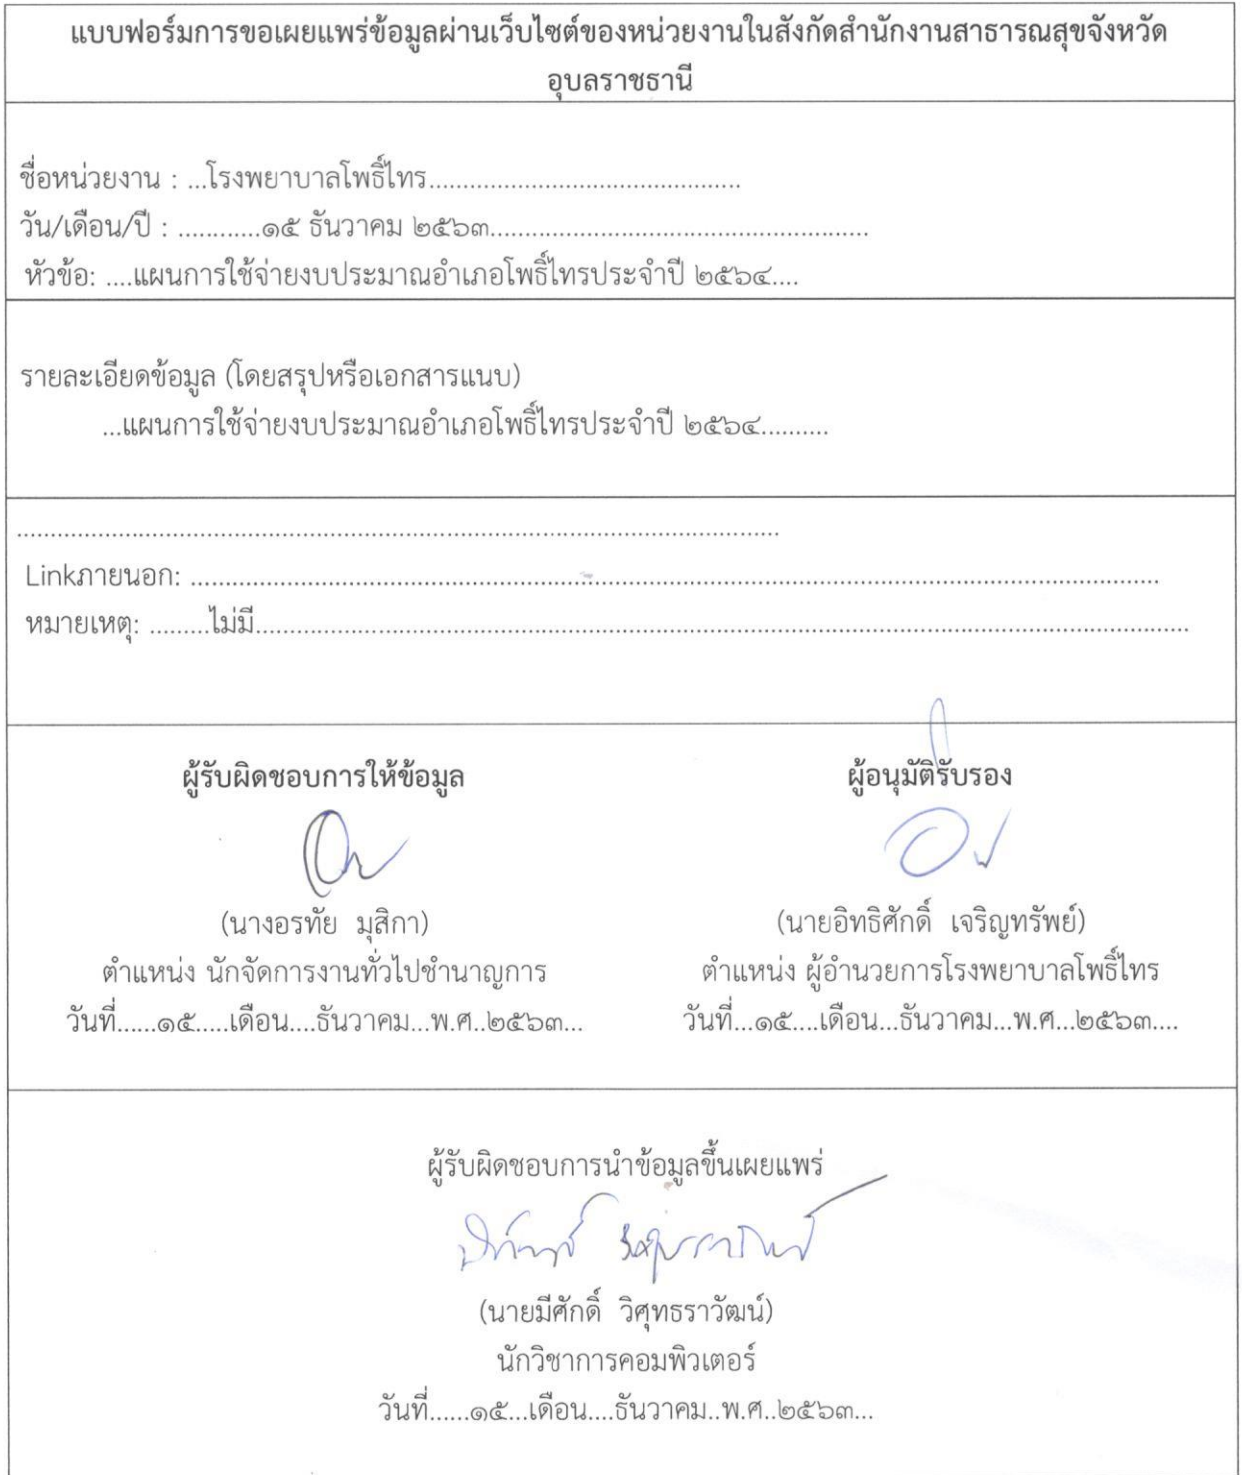 แบบฟอร์มการขอเผยแพร่ข้อมูลผ่านเว็บไซต์ของหน่วยงานในสังกัดสำนักงานสาธารณสุขจังหวัด
อุบลราชธานี
ชื่อหน่วยงาน : ...โรงพยาบาลโพธิ์ไทร.............................................
วัน/เดือน/ปี : ............๑๕ ธันวาคม ๒๕๖๓.......................................................
หัวข้อ: ....แผนการใช้จ่ายงบประมาณอำเภอโพธิ์ไทรประจำปี ๒๕๖๔....
รายละเอียดข้อมูล (โดยสรุปหรือเอกสารแนบ)
...แผนการใช้จ่ายงบประมาณอำเภอโพธิ์ไทรประจำปี ๒๕๖๔..........
..................................................................................................................
Linkภายนอก: ...........................................................................................................................................
หมายเหตุ: .........ไม่มี.......................................................................................................................................
ผู้รับผิดชอบการให้ข้อมูล
(นางอรทัย มุสิกา)
ตำแหน่ง นักจัดการงานทั่วไปชำนาญการ
วันที่......๑๕.....เดือน....ธันวาคม...พ.ศ..๒๕๖๓...
ผู้อนุมัติรับรอง
(นายอิทธิศักดิ์ เจริญทรัพย์)
ตำแหน่ง ผู้อำนวยการโรงพยาบาลโพธิ์ไทร
วันที่...๑๕....เดือน...ธันวาคม...พ.ศ...๒๕๖๓....
ผู้รับผิดชอบการนำข้อมูลขึ้นเผยแพร่
(นายมีศักดิ์ วิศุทธราวัฒน์)
นักวิชาการคอมพิวเตอร์
วันที่......๑๕...เดือน....ธันวาคม..พ.ศ..๒๕๖๓...